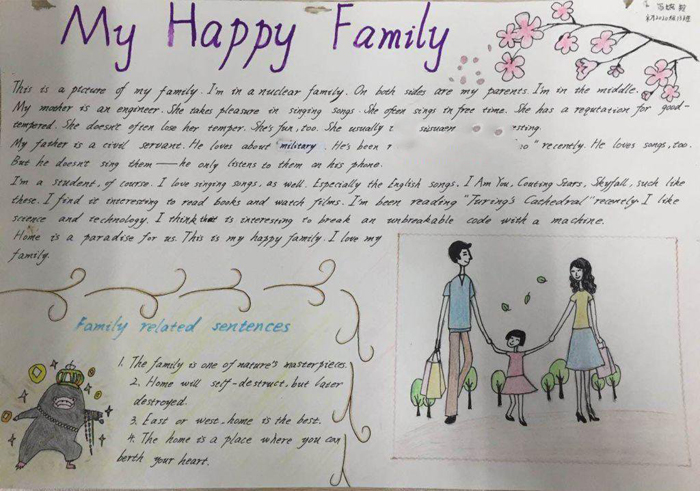 My Happy Family
This is a picture of my family. I'm in a nuclear family. On both sides are my parents. I'm in the middle.
My mother is an engineer. She takes pleasure in singing songs. She often sings in free time. She has a reputation for good-
tempered. She doesn't often lose her temper. She's fun, too. She usually
My father is a civil servant. He loves about military. He's been recently. He loves songs, too.
But he doesn't sing them — he only listens to them on his phone.
I'm a student, of course. I love singing songs, as well. Especially the English songs, I Am You, Couting Stars, Skyfall, such like
these. I find it interesting to read books and watch films. I'm been reading "Turing's Cathedral" recently. I like
science and technology. I think that is interesting to break an unbreakable code with a machine.
Home is a paradise for us. This is my happy family. I love my
family.
Family related sentences
1. The family is one of nature's masterpieces.
2. Home will self-destruct, but later
destroyed.
3. East or west, home is the best.
4. The home is a place where you can
berth your heart.